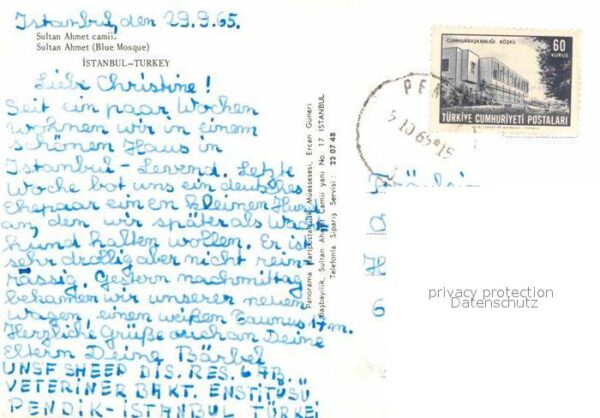 Istanbul, den 29.9.65.
Sultan Ahmet camii.
Sultan Ahmet (Blue Mosque)
İSTANBUL-TURKEY
Liebe Christine!
Seit ein paar Wochen
wohnen wir in einem
schönen Haus in
Istanbul-Levend. Letzte
Woche bot uns ein deutsches
Ehepaar einen kleinen Hund
an, den wir später als Wach
hund halten wollen. Er ist
sehr drollig aber nicht rein
rassig. Gestern nachmittag
bekamen wir unseren neuen
wagen einen weißen Taunus 17 m.
Herzliche Grüße auch an Deine
Eltern Deine Bärbel
UNSF SHEEP DIS. RES. LAB.
VETERINER BAKT. ENSTITÜSÜ
PENDİK-İSTANBUL TÜRKEI
Panorama Kartpostal Müessesesi, Ercan Güneri
Başbayilik, Sultan Ahmet Camii yanı No 17 ISTANBUL
Telefonla Sipariş Servisi : 22 07 48
CUMHURBAŞKANLIĞI KÖŞKÜ
60
KURUŞ
TÜRKİYE CUMHURİYETİ POSTALARI
PEN
5 10 65
15
Fräulein
privacy protection
Datenschutz